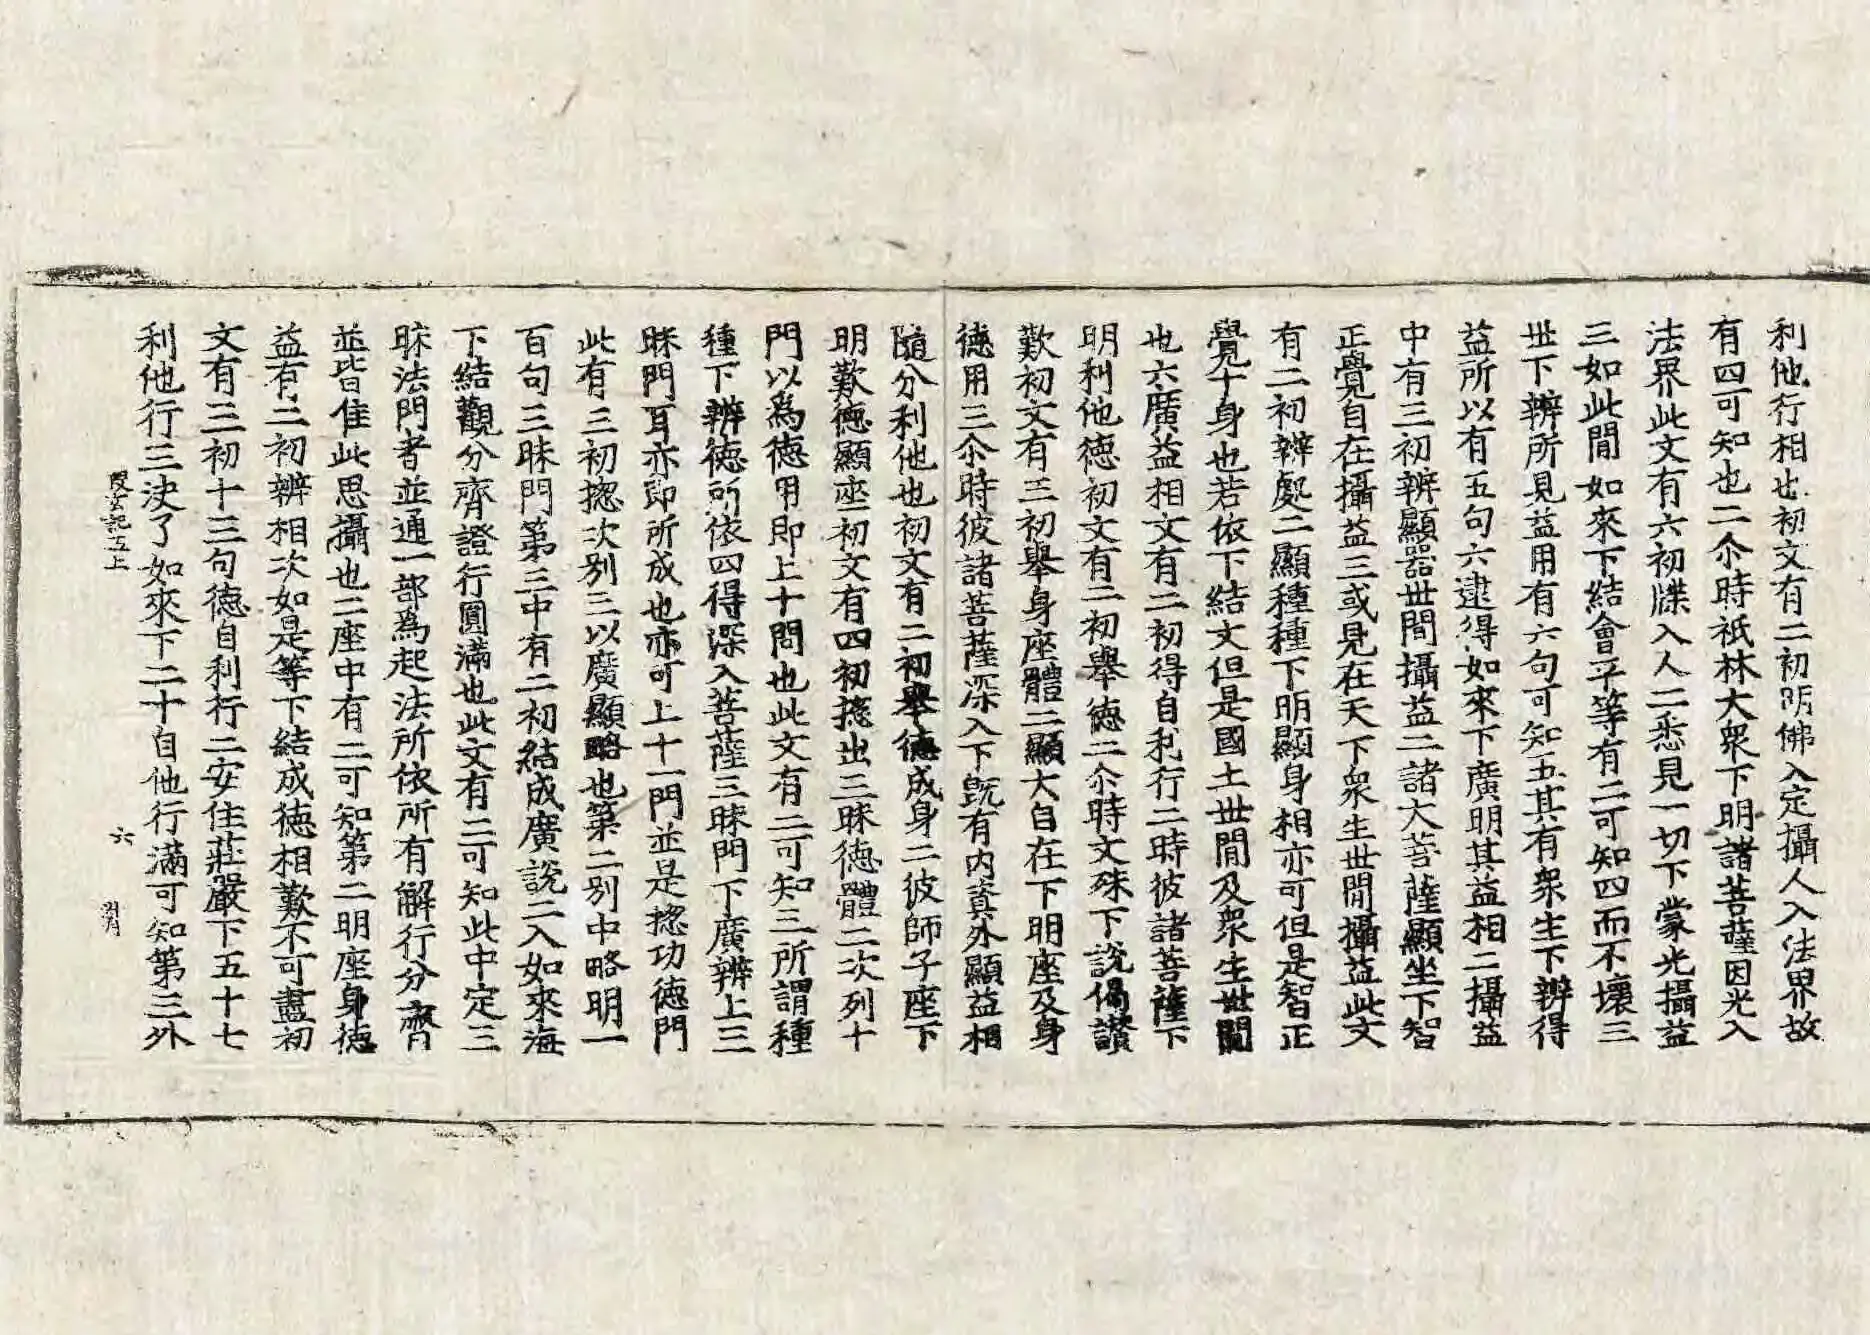 利他行相也初文有二初明佛入定攝人入法界故
有四可知也二尒時祇林大衆下明諸菩薩因光入
法界此文有六初牒入人二悉見一切下蒙光攝益
三如此間如來下結會孚等有二可知四而不壞三
世下辨所見益用有六句可知五其有衆生下辨得
益所以有五句六逮得如來下廣明其益相二攝益
中有三初辨顯器世間攝益二諸大菩薩顯坐下智
正覺自在攝益三或見在天下衆生世間攝益此文
有二初辨處二顯種種下明顯身相亦可但是智正
覺十身也若依下結文但是國土世間及衆生世間
也六廣益相文有二初得自利行二時彼諸菩薩下
明利他德初文有二初舉德二尒時文殊下說偈讚
歎初文有三初舉身座體二顯大自在下明座及身
德用三尒時彼諸菩薩深入下旣有内資外顯益相
隨分利他也初文有二初舉德成身二彼師子座下
明歎德顯座初文有四初揔出三昧德體二次列十
門以為德用即上十問也此文有二可知三所謂種
種下辨德所依四得深入菩薩三昧門下廣辨上三
昧門耳亦即所成也亦可上十一門並是揔功德門
此有三初揔次別三以廣顯略也第二別中略明一
百句三昧門第三中有二初結成廣說二入如來海
下結觀分齊證行圓滿也此文有二可知此中定三
昧法門者並通一部為起法所依所有解行分齊
並皆住此思攝也二座中有二可知第二明座身德
益有二初辨相次如是等下結成德相歎不可盡初
文有三初十三句德自利行二安住莊嚴下五十七
利他行三決了如來下二十自他行滿可知第三外
記五上
六